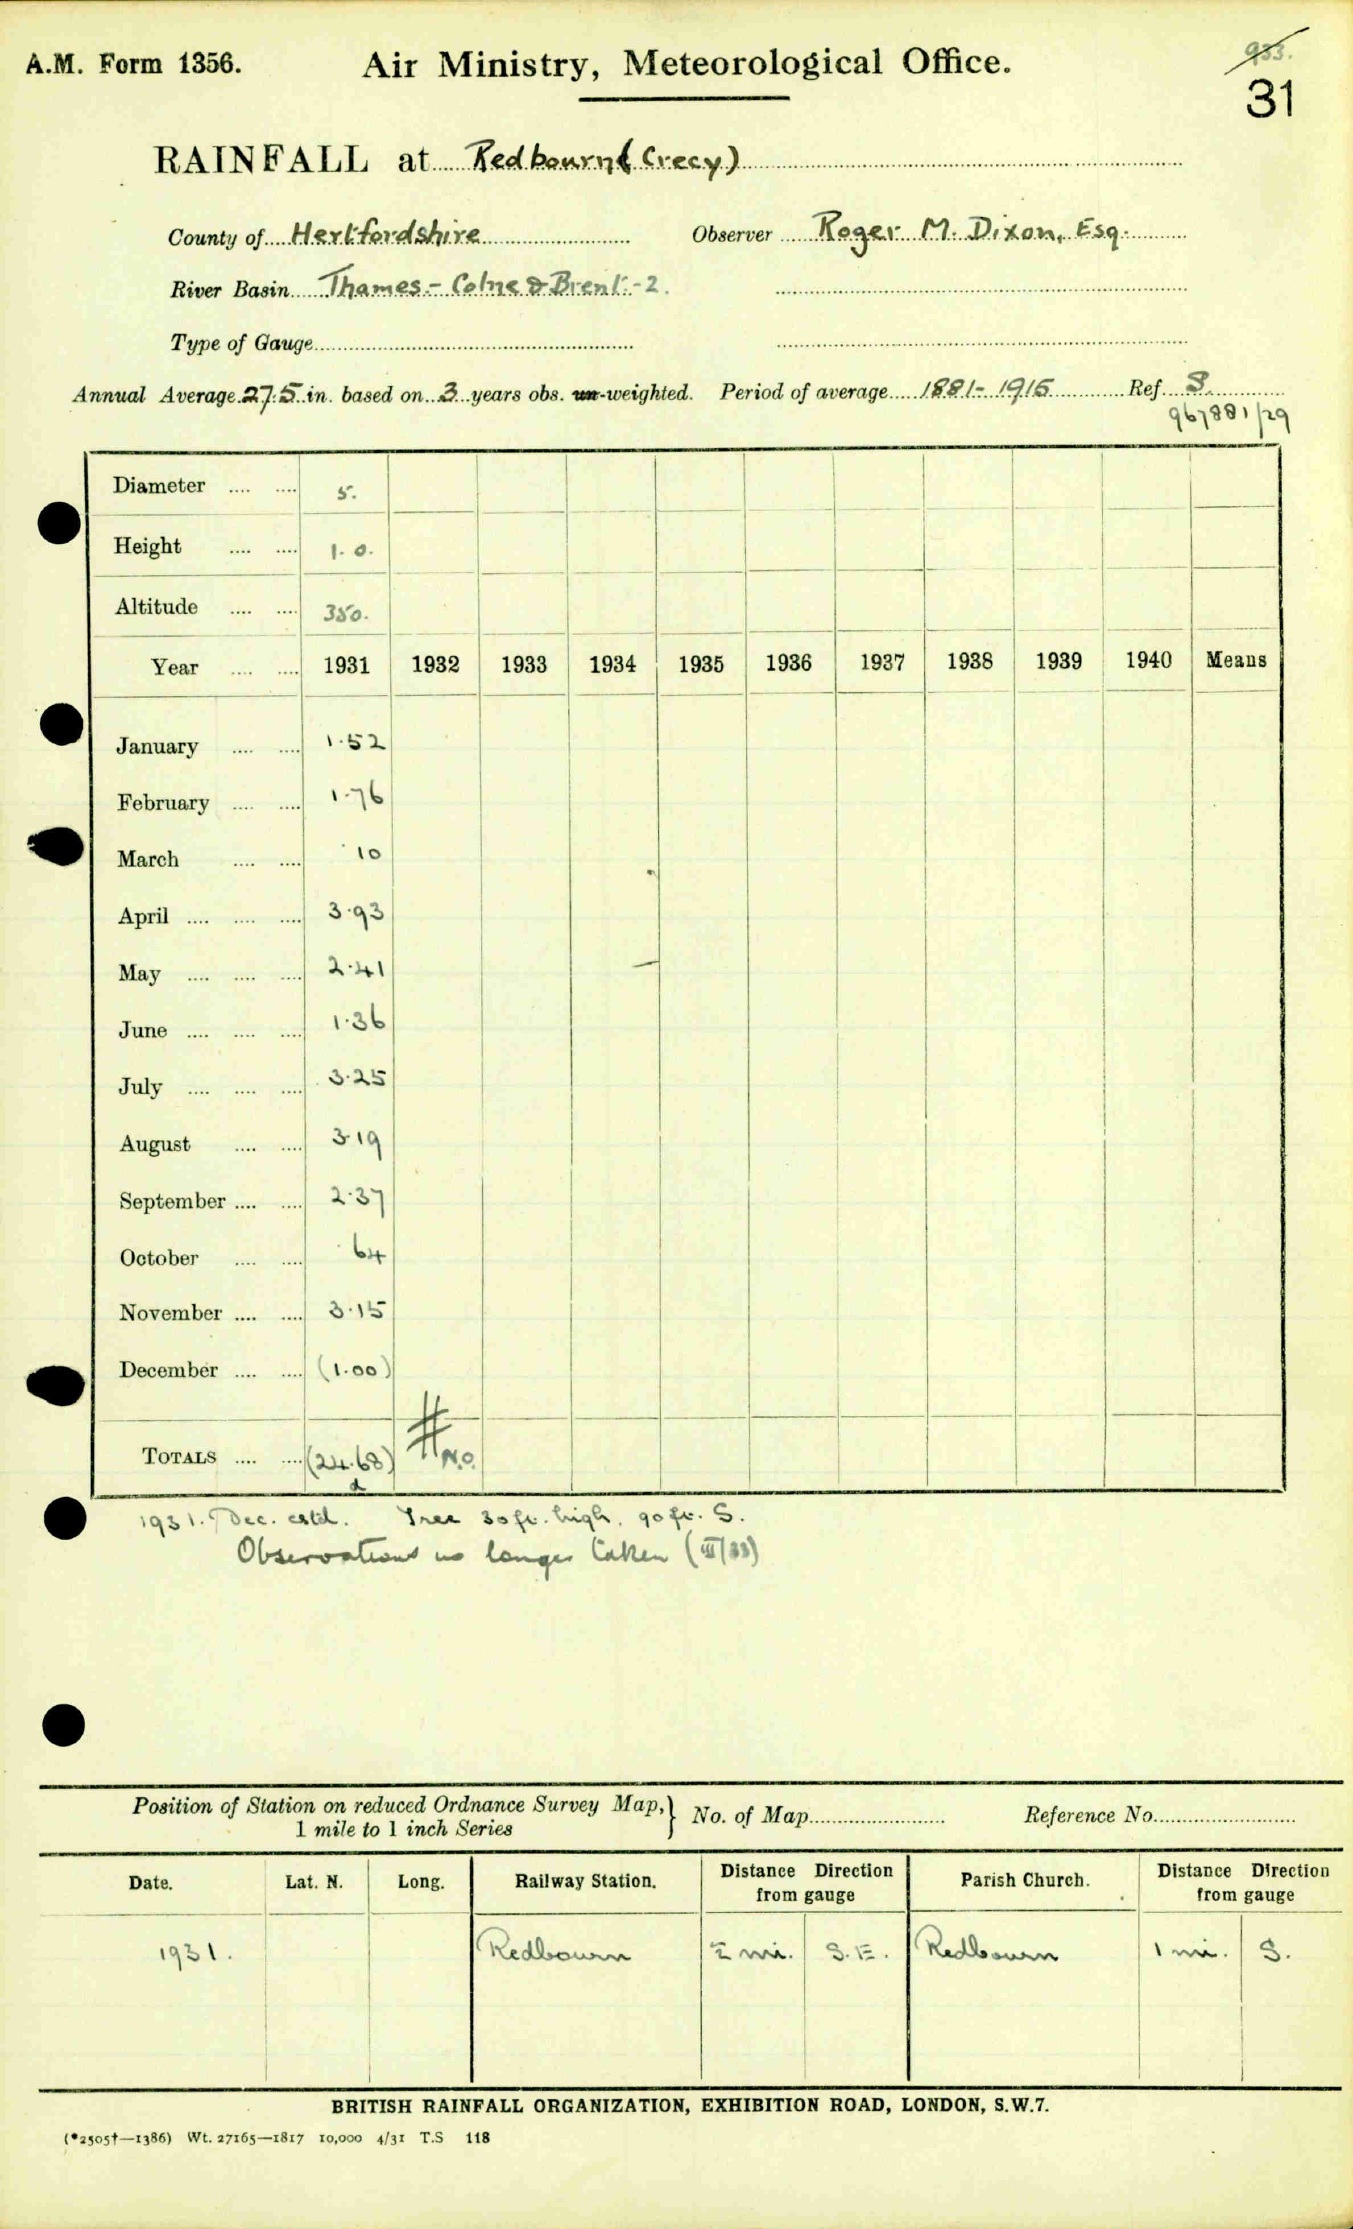 A.M. Form 1356. Air Ministry, Meteorological Office. 933.
31
RAINFALL at Redbourn (Crecy)
County of Hertfordshire Observer Roger M. Dixon, Esq.
River Basin Thames - Colne & Brent - 2.
Type of Gauge
Annual Average 27.5 in. based on 3 years obs. un-weighted. Period of average 1881-1915 Ref. S.
967881/29
Diameter .... .... 5.
Height .... .... 1.0.
Altitude .... .... 350.
Year .... .... 1931 1932 1933 1934 1935 1936 1937 1938 1939 1940 Means
January .... .... 1.52
February .... .... 1.76
March .... .... .10
April .... .... .... 3.93
May .... .... .... 2.41
June .... .... .... 1.36
July .... .... .... 3.25
August .... .... 3.19
September .... .... 2.37
October .... .... .64
November .... .... 3.15
December .... .... (1.00)
TOTALS .... .... (24.68) # N.O.
1931. Dec. estd. Tree 30 ft. high, 90 ft. S.
Observations no longer taken (III/33)
Position of Station on reduced Ordnance Survey Map, } No. of Map Reference No.
1 mile to 1 inch Series
Date. Lat. N. Long. Railway Station. Distance Direction from gauge Parish Church. Distance Direction from gauge
1931. Redbourn ½ mi. S.E. Redbourn 1 mi. S.
BRITISH RAINFALL ORGANIZATION, EXHIBITION ROAD, LONDON, S.W.7.
(*2505†—1386) Wt. 27165—1817 10,000 4/31 T.S 118